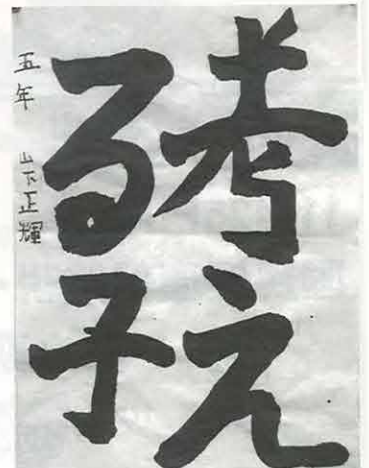 考え
る子
五年 山下正輝